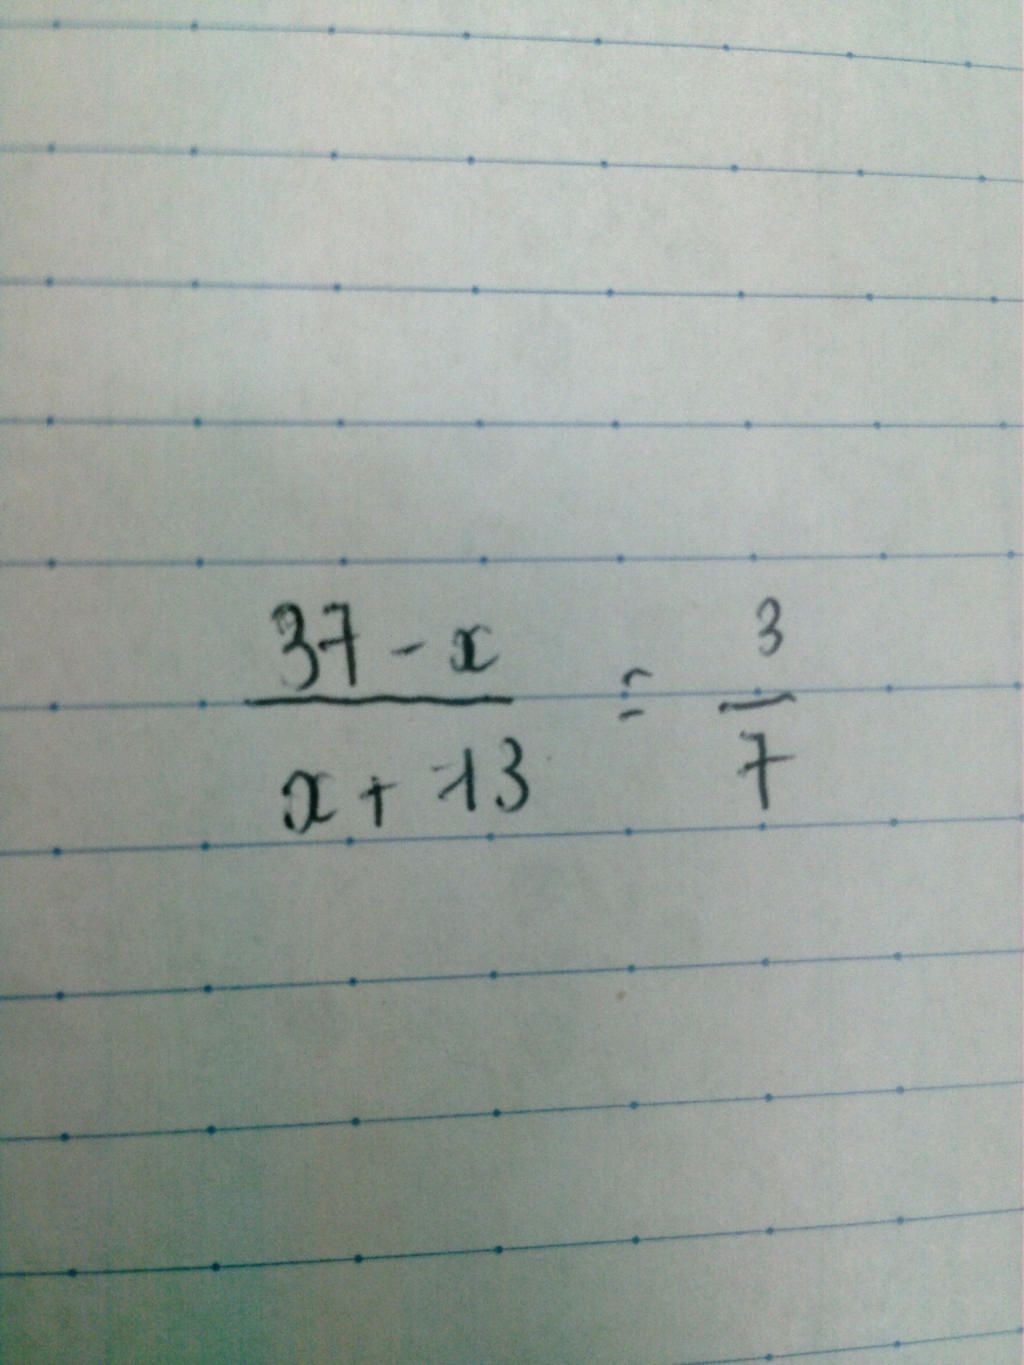 37 - x / x + 13 = 3 / 7